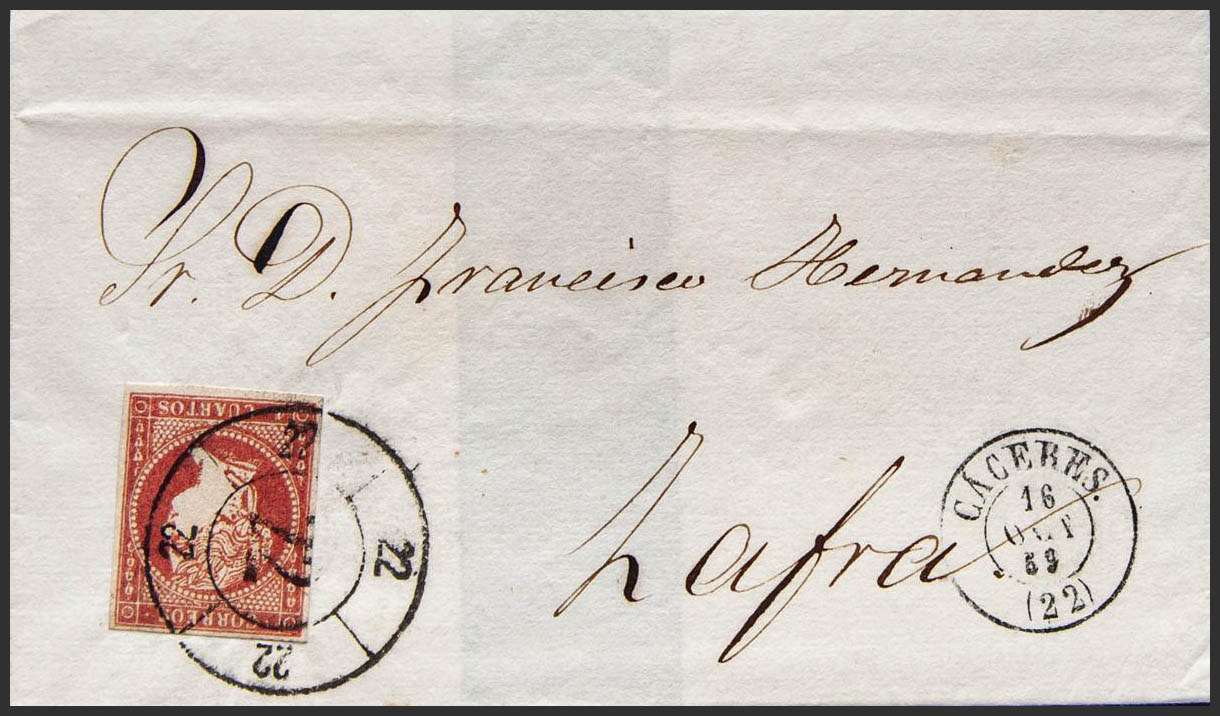 Sr. D. Francisco Hernandez
Zafra.
CÁCERES.
16
OCT
59
(22)
4 CUARTOS
CORREOS
22
22
22
22